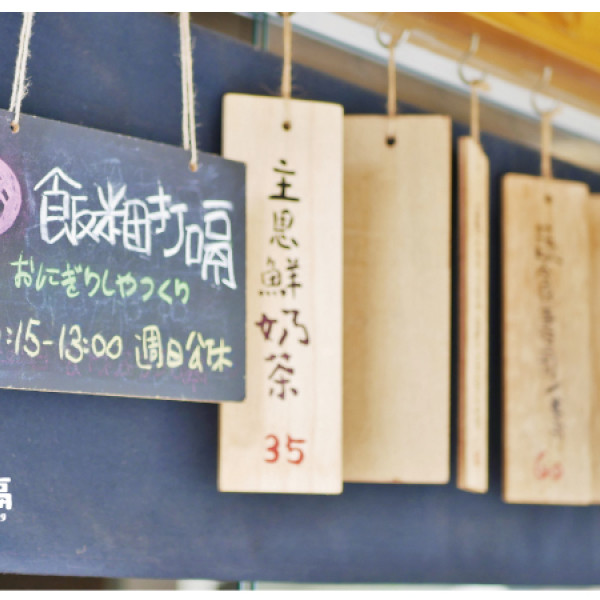 飯糰打嗝
おにぎりしゃっくり
:15-13:00 週日公休
主恩鮮奶茶
35
60
嗝